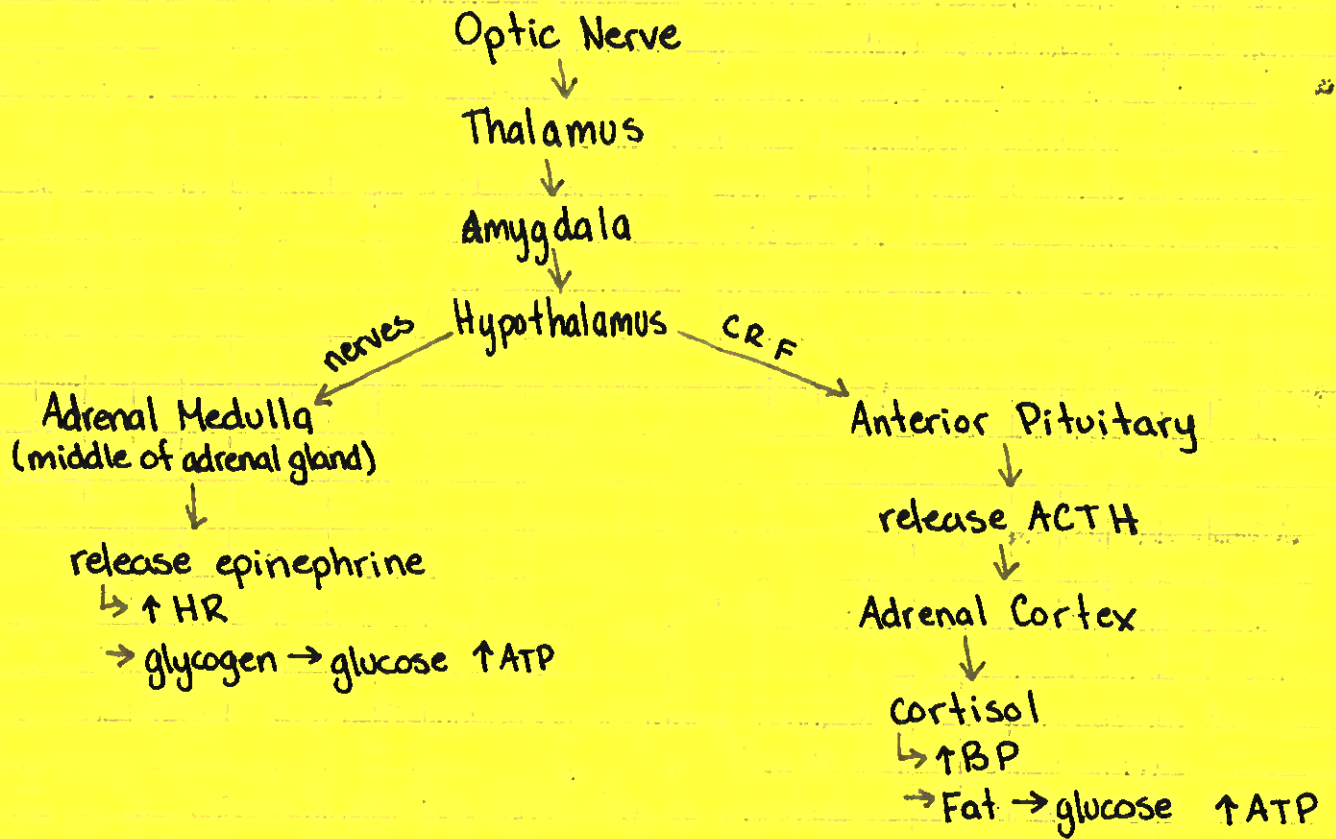 Optic Nerve
↓
Thalamus
↓
Amygdala
↓
Hypothalamus
nerves
CRF
Adrenal Medulla
(middle of adrenal gland)
↓
release epinephrine
↳ ↑ HR
→ glycogen → glucose ↑ATP
Anterior Pituitary
↓
release ACTH
↓
Adrenal Cortex
↓
cortisol
↳ ↑BP
→ Fat → glucose ↑ATP